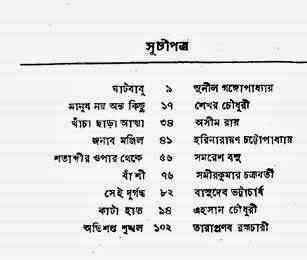 সূচীপত্র
ঘাটবাবু ৯ সুনীল গঙ্গোপাধ্যায়
মানুষ নয় অন্য কিছু ১৭ শেখর চৌধুরী
খাঁচা ছাড়া আত্মা ৩৪ অসীম রায়
জনাব মঞ্জিল ৪১ হরিনারায়ণ চট্টোপাধ্যায়
শতাব্দীর ওপার থেকে ৫৬ সমরেশ বসু
বাঁশী ৭৬ সমীরকুমার চক্রবর্তী
সেই দুর্গন্ধ ৮২ বাসুদেব ভট্টাচার্য
কাটা হাত ৯৪ এহসান চৌধুরী
অভিশপ্ত শৃঙ্খল ১০২ তারাপ্রণব ব্রহ্মচারী